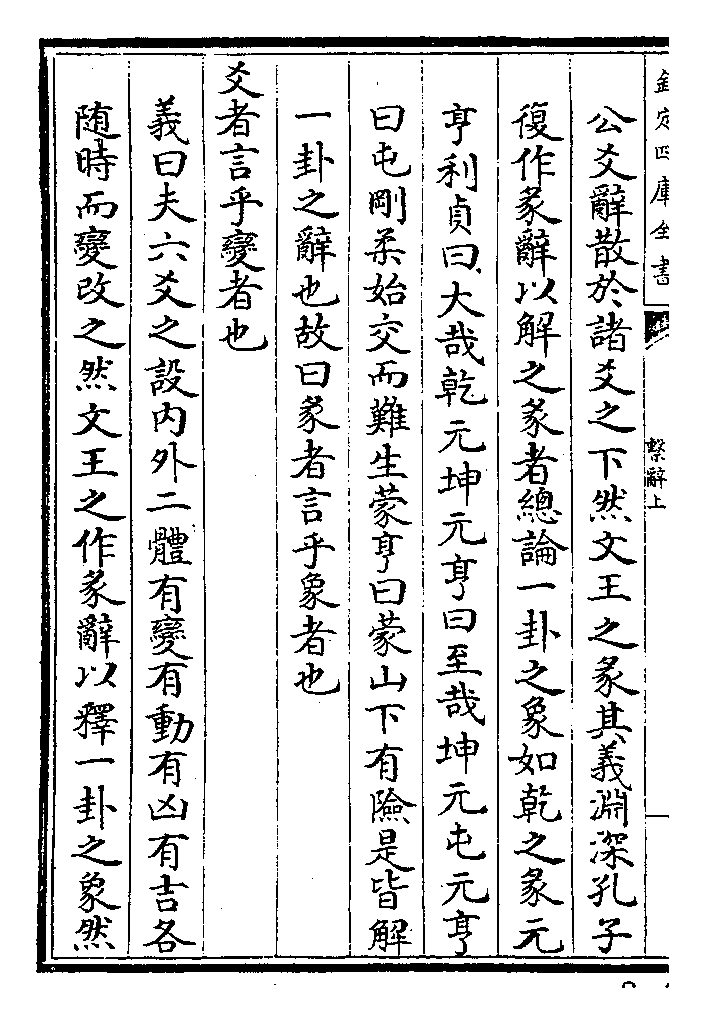 欽定四庫全書
繫辭上
公爻辭散於諸爻之下然文王之彖其義淵深孔子
復作彖辭以解之彖者總論一卦之象如乾之彖元
亨利貞曰大哉乾元坤元亨曰至哉坤元屯元亨
曰屯剛柔始交而難生蒙亨曰蒙山下有險是皆解
一卦之辭也故曰彖者言乎象者也
爻者言乎變者也
義曰夫六爻之設內外二體有變有動有凶有吉各
随時而變改之然文王之作彖辭以釋一卦之象然